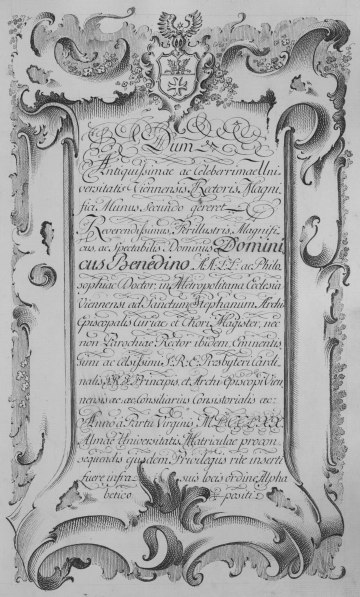 Dum
Antiquissimae ac Celeberrimae Uni
versitatis Viennensis Rectoris Magni
fici Munus Secundo gereret
Reverendissimus, Perillustris, Magnifi
cus, ac Spectabilis Dominus Domini
cus Benedino, AA. LL. ac Philo
sophiae Doctor, in Metropolitana Ecclesia
Viennensi ad Sanctum Stephanum, Archi
Episcopalis Curiae, et Chori Magister, nec
non Parochiae Rector ibidem, Eminentis
simi ac Celsissimi S. R. E. Presbyteri Cardi
nalis, S. R. I. Principis, et Archi Episcopi Vien
nensis ac Consiliarius Consistorialis &c.
Anno à Partu Virginis
Almae Universitatis Matriculae pro con
sequendis ejusdem Privilegiis rite inserti
fuere infra suis locis ordine Alpha
betico positi